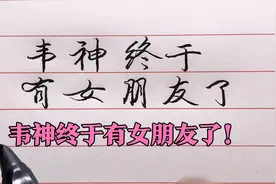 韦神终于
有女朋友了
韦神终于有女朋友了!